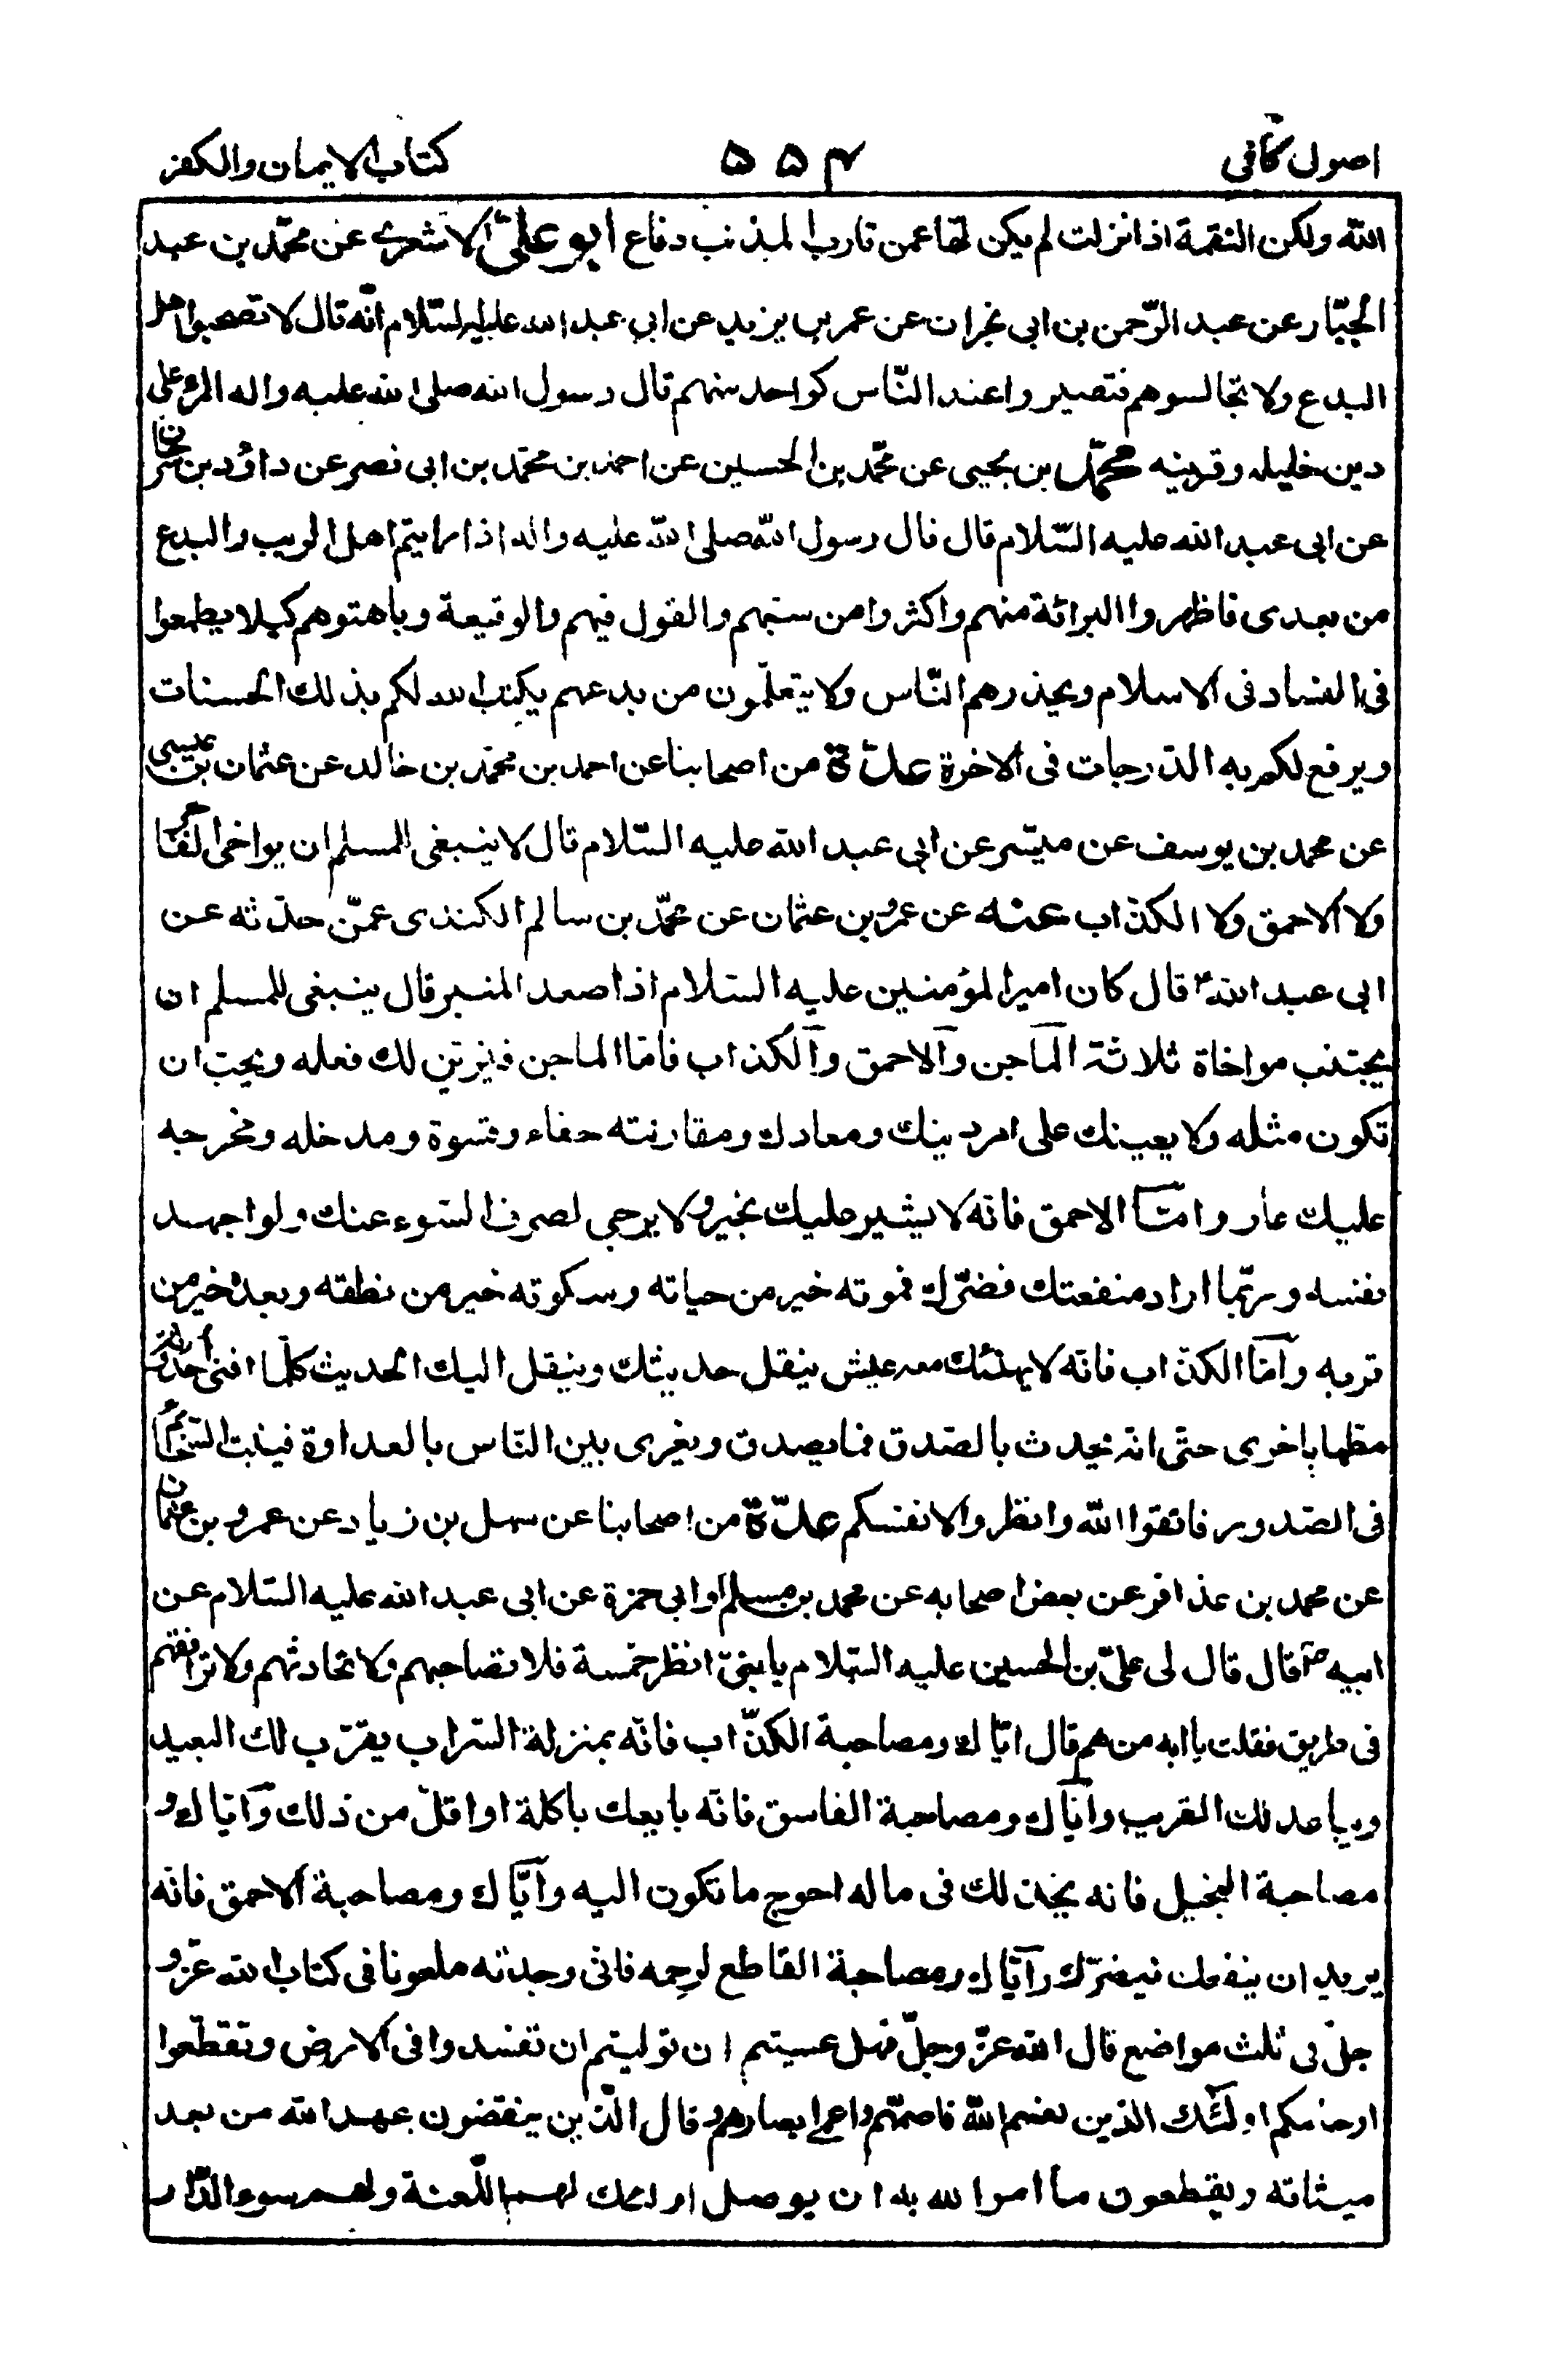 اصول كافى
٥٥٤
كتاب الايمان والكفر
الله ولكن النقمة اذا نزلت لم يكن لها عمن قارب المذنب دفاع ابو على الاشعرى عن محمّد بن عبد
الجبّار عن عبد الرّحمن بن ابى نجران عن عمر بن يزيد عن ابى عبد الله عليه السّلام انّه قال لا تصحبوا اهل
البدع ولا تجالسوهم فتصيروا عند النّاس كواحد منهم قال رسول الله صلى الله عليه واله المرء على
دين خليله وقرينه محمّد بن يحيى عن محّمد بن الحسين عن احمد بن محمّد بن ابى نصر عن داؤد بن سرحان
عن ابى عبد الله عليه السّلام قال قال رسول الله صلى الله عليه واله اذا رايتم اهل الريب والبدع
من بعدى فاظهروا البرائة منهم واكثروا من سبّهم والقول فيهم والوقيعة وباهتوهم كيلا يطمعوا
فى الفساد فى الاسلام ويحذرهم النّاس ولا يتعلّمون من بدعهم يكتب الله لكم بذلك الحسنات
ويرفع لكم به الدّرجات فى الاخرة عدّة من اصحابنا عن احمد بن محمّد بن خالد عن عثمان بن عيسى
عن محمد بن يوسف عن ميّسر عن ابى عبد الله عليه السّلام قال لا ينبغى للمسلم ان يواخى الفاجر
ولا الاحمق ولا الكذّاب عنه عن عمرو بن عثمان عن محمّد بن سالم الكندى عمّن حدّثه عن
ابى عبد الله ع قال كان امير المؤمنين عليه السّلام اذا صعد المنبر قال ينبغى للمسلم ان
يجتنب مواخاة ثلاثة الماجن والاحمق والكذاب فامّا الماجن فيزيّن لك فعله ويحبّ ان
تكون مثله ولا يعينك على امر دينك ومعادك ومقارنته جفاء وقسوة ومدخله ومخرجه
عليك عار وامّا الاحمق فانّه لا يشير عليك بخير ولا يرجى لصرف السّوء عنك ولو اجهد
نفسه وربّما اراد منفعتك فضرّك فموته خير من حياته وسكوته خير من نطقه وبعده خير من
قربه وامّا الكذّاب فانّه لا يهنئك معه عيش ينقل حديثك وينقل اليك الحديث كلّما افنى احدوثة
مطها باخرى حتّى انّه يحدث بالصّدق فما يصدق ويغرى بين النّاس بالعداوة فينبت السّخائم
فى الصّدور فاتقوا الله وانظروا لانفسكم عدّة من اصحابنا عن سهل بن زياد عن عمرو بن عثمان
عن محمد بن عذافر عن بعض اصحابه عن محمد بن مسلم او ابى حمزة عن ابى عبد الله عليه السّلام عن
ابيه ع قال قال لى علىّ بن الحسين عليه السّلام يا بنىّ انظر خمسة فلا تصاحبهم ولا تحادثهم ولا ترافقهم
فى طريق فقلت يا ابه من هم قال ايّاك ومصاحبة الكذّاب فانّه بمنزلة السّراب يقرّب لك البعيد
ويباعد لك القريب وايّاك ومصاحبة الفاسق فانّه بايعك باكلة او اقلّ من ذلك وايّاك و
مصاحبة البخيل فانه يخذلك فى ماله احوج ما تكون اليه وايّاك ومصاحبة الاحمق فانّه
يريد ان ينفعك فيضرّك وايّاك ومصاحبة القاطع لرحمه فانّى وجدته ملعونا فى كتاب الله عزّ و
جلّ فى ثلث مواضع قال الله عزّ وجلّ فهل عسيتم ان توليتم ان تفسدوا فى الارض وتقطّعوا
ارحامكم اولئك الذين لعنهم الله فاصمّهم واعمى ابصارهم وقال الّذين ينقضون عهد الله من بعد
ميثاقه ويقطعون ما امر الله به ان يوصل اولئك لهم اللّعنة ولهم سوء الدّار